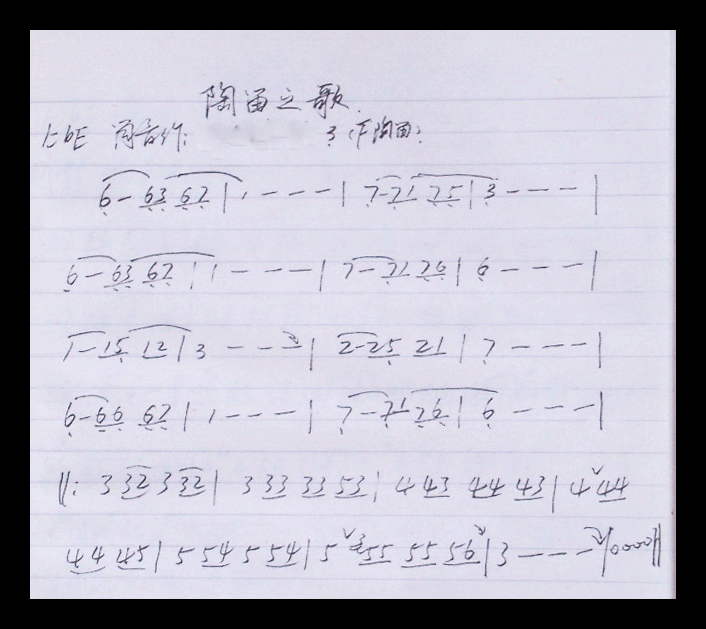 陶笛之歌
1=bE 筒音作: 3 (F陶笛)
6 - 63 67 | 1 - - - | 7 - 71 75 | 3 - - - |
6 - 63 67 | 1 - - - | 7 - 71 76 | 6 - - - |
1 - 15 12 | 3 - - - | 2 - 25 21 | 7 - - - |
6 - 66 67 | 1 - - - | 7 - 71 76 | 6 - - - |
||: 3 32 3 32 | 3 33 33 53 | 4 43 44 43 | 4 44
44 45 | 5 54 5 54 | 5 55 55 56 | 3 - - - | 0000 ||